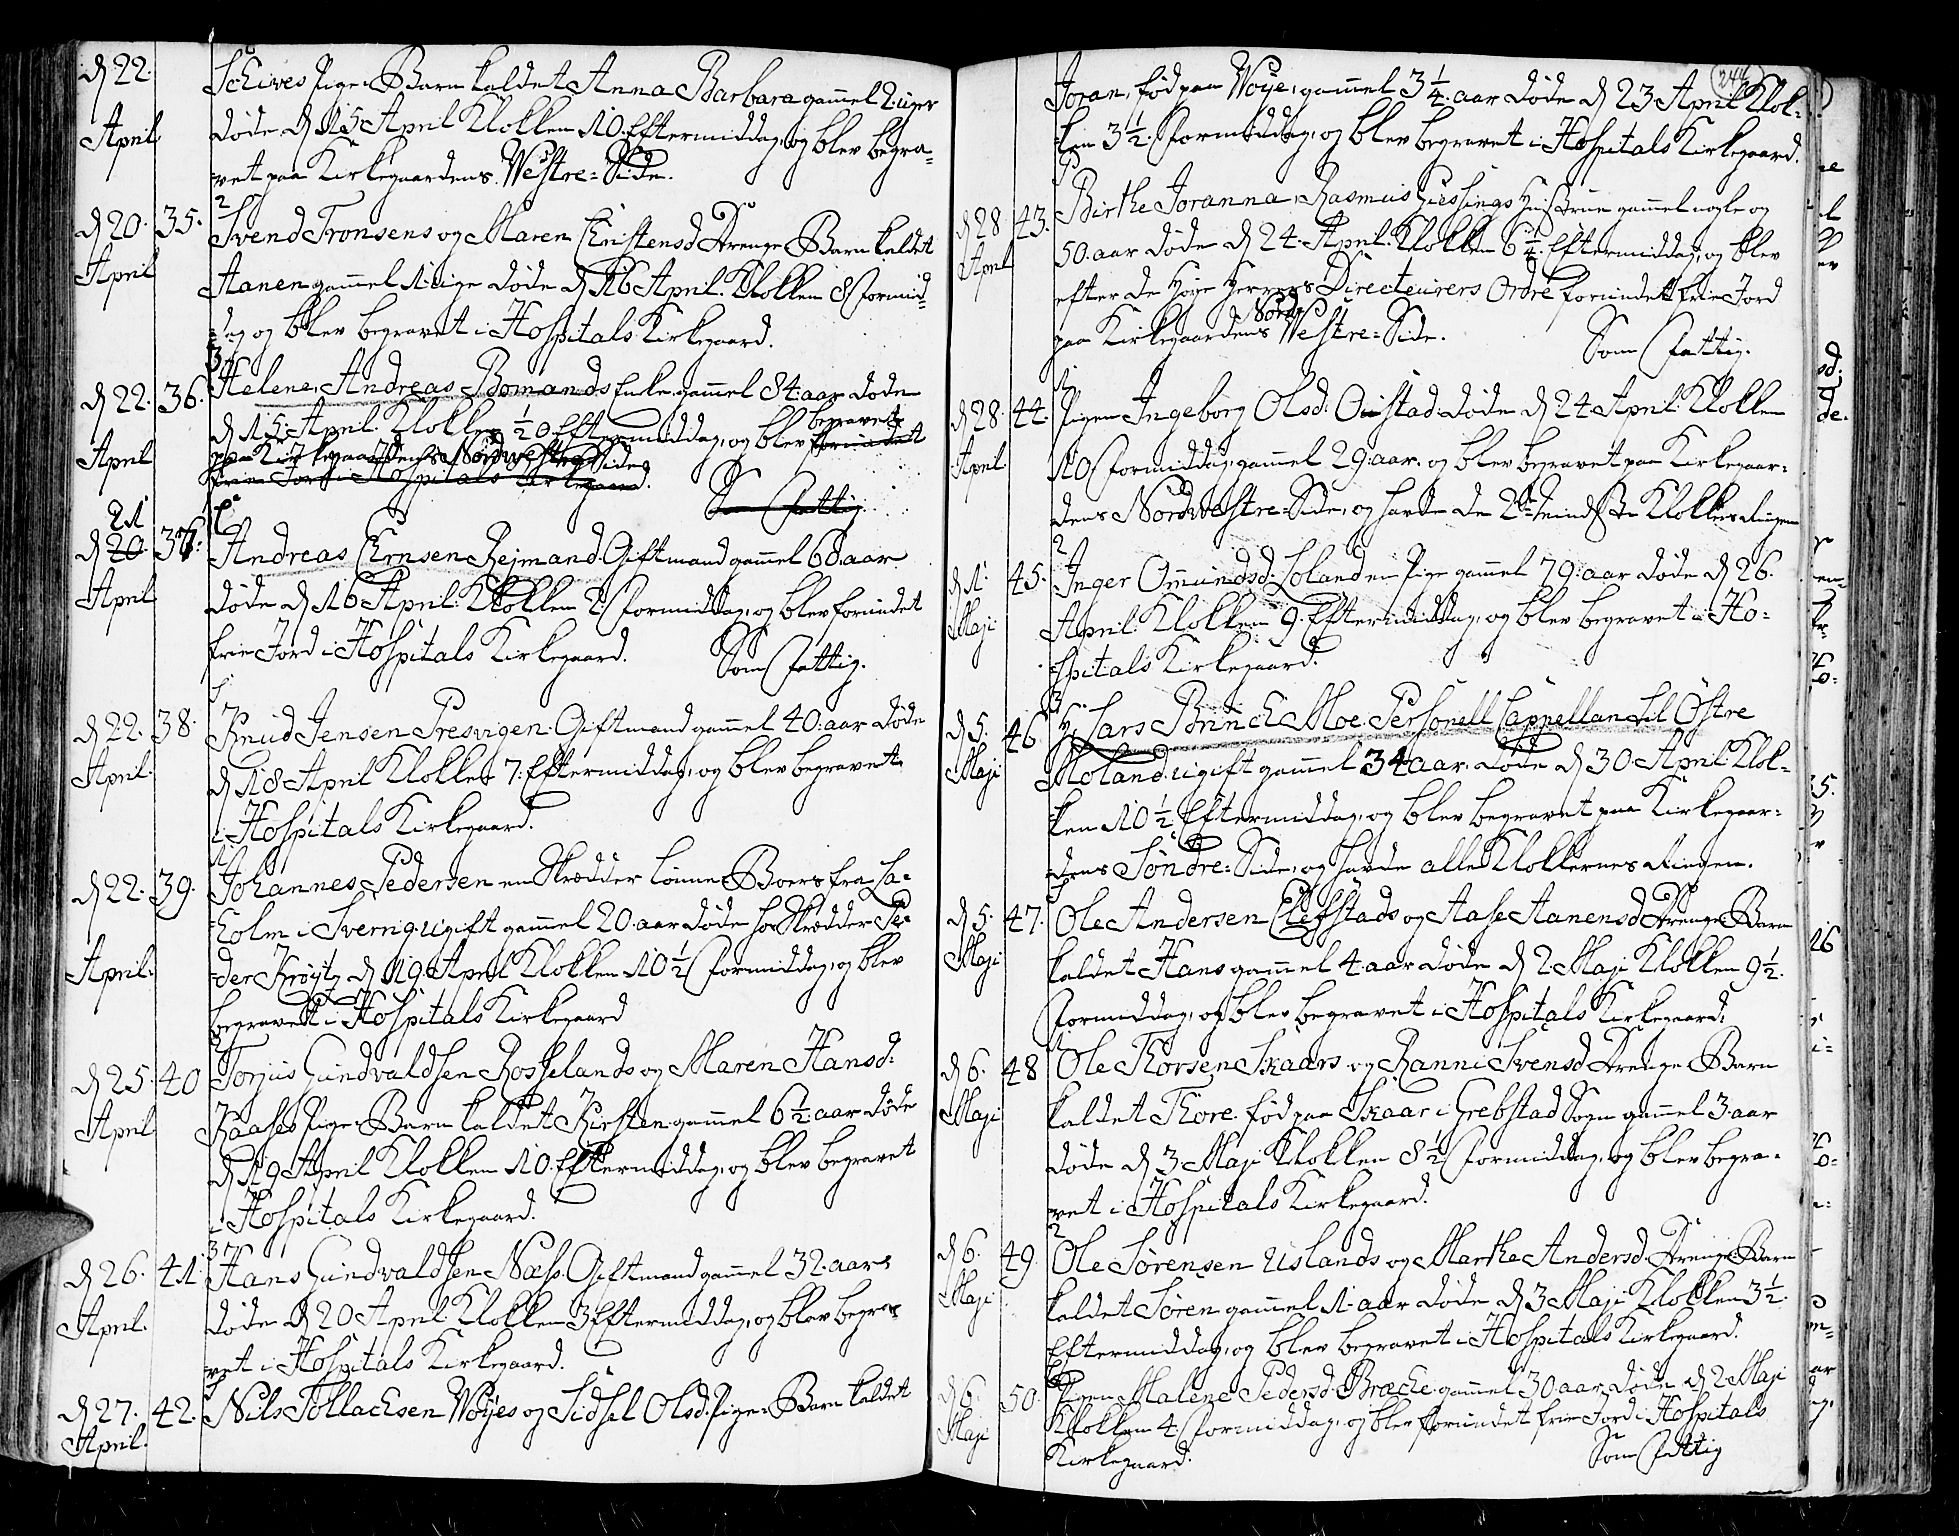 d 22. April
Schives Pige-Barn kaldet Anna Barbara gammel 2. uger
døde d 15 April Klokken 10. Eftermiddag, og blev begra-
vet paa Kirkegaardens Vestre-Side.
2
d 20. April 35.
Svend Tronsens og Maren Christensd Drenge-Barn kaldet
Aanen gammel 1. uge døde d 16 April. Klokken 8 Formid-
dag og blev begravet i Hospitals Kirkegaard.
3
d 22. April 36.
Helene, Andreas Bomands Enke, gammel 84 aar døde
d 15 April. Klokken 1/2 0 Eftermiddag, og blev begravet
paa Kirkegaardens Nordvestre Side
frie Jord i Hospitals Kirkegaard. Som Fattig.
d 21 20. April 37.
Andreas Ernsen Rejmand. Giftmand gammel 60. aar
døde d 16 April. Klokken 2. Formiddag, og blev forundet
frie Jord i Hospitals Kirkegaard. Som Fattig.
d 22. April. 38.
Knud Jensen Presvigen. Giftmand gammel 40. aar døde
d 18 April Klokken 7. Eftermiddag, og blev begravet
i Hospitals Kirkegaard.
d 22. April. 39.
Johannes Pedersen en Skrædder
holm i Sverrig ugift gammel 20. aar døde hos Skrædder Pe-
der Krøytz d 19. April Klokken 10 1/2 Formiddag, og blev
begravet i Hospitals Kirkegaard
d 25. April 40
Torjus Gundvaldsen Rosselands og Maren Hansd:
Kaases Pige-Barn kaldet Kirsten gammel 6 1/2 aar døde
d 19 April Klokken 10. Eftermiddag, og blev begravet
i Hospitals Kirkegaard.
37
d 26. April. 41.
Hans Gundvaldsen Næss. Giftmand gammel 32. aar
døde d 20 April Klokken 3 Eftermiddag, og blev begra-
vet i Hospitals Kirkegaard.
d 27. April. 42.
Nils Tollachsen Vøyes og Sidsel Olsd. Pige-Barn kaldet
244
Joran, fød paa Vøye, gammel 3 1/4 aar døde d 23 April Klok-
ken 3 1/2. Formiddag, og blev begravet i Hospitals Kirkegaard.
d 28 April 43.
Birthe Joranna, Rasmus Giessings Hustrue gammel nogle og
50. aar døde d 24. April. Klokken 6 1/2. Eftermiddag, og blev
efter de Høye Herrers Directeurers Ordre forundet frie Jord
paa Kirkegaardens Nord Vestre-Side. Som Fattig.
d 28 April 44.
Pigen Ingeborg Olsd: Onstad døde d 24 April. Klokken
10 Formiddag, gammel 29. aar. og blev begravet paa Kirkegaar-
dens Nordvestre-Side, og havde de 2de mindste Klokkers Ringen
2
d 1. Maji 45.
Inger Omundsd: Loland en Pige gammel 79. aar døde d 26.
April. Klokken 9. Eftermiddag, og blev begravet i Ho-
spitals Kirkegaard.
3
d 5. Maji 46
Hr. Lars Brinch Moe. Personell Cappellan til Østre
Moland, ugift gammel 34 aar. døde d 30 April. Klok-
ken 10 1/2. Eftermiddag, og blev begravet paa Kirkegaar-
dens Søndre-Side, og havde alle Klokkernes Ringen.
d 5. Maji 47.
Ole Andersen Clefstads og Aase Aanensd Drenge-Barn
kaldet Hans gammel 4. aar døde d 2. Maji Klokken 9 1/2.
Formiddag, og blev begravet i Hospitals Kirkegaard.
d 6. Maji 48
Ole Thorsen Skaars og Ranni Svensd Drenge-Barn
kaldet Thore. fød paa Skaar i Grebstad Sogn gammel 3. aar
døde d 3 Maji Klokken 8 1/2 Formiddag, og blev begra-
vet i Hospitals Kirkegaard.
2
d 6. Maji 49
Ole Sørensen Uslands og Marthe Andersd. Drenge-Barn
kaldet Søren gammel 1. aar døde d 3 Maji Klokken 3 1/2.
Eftermiddag, og blev begravet i Hospitals Kirkegaard.
d 6. Maji 50.
Pigen Malene Pedersd. Bræche gammel 30 aar døde d 2 Maji
Klokken 4. Formiddag, og blev forundet frie Jord i Hospitals
Kirkegaard. Som Fattig